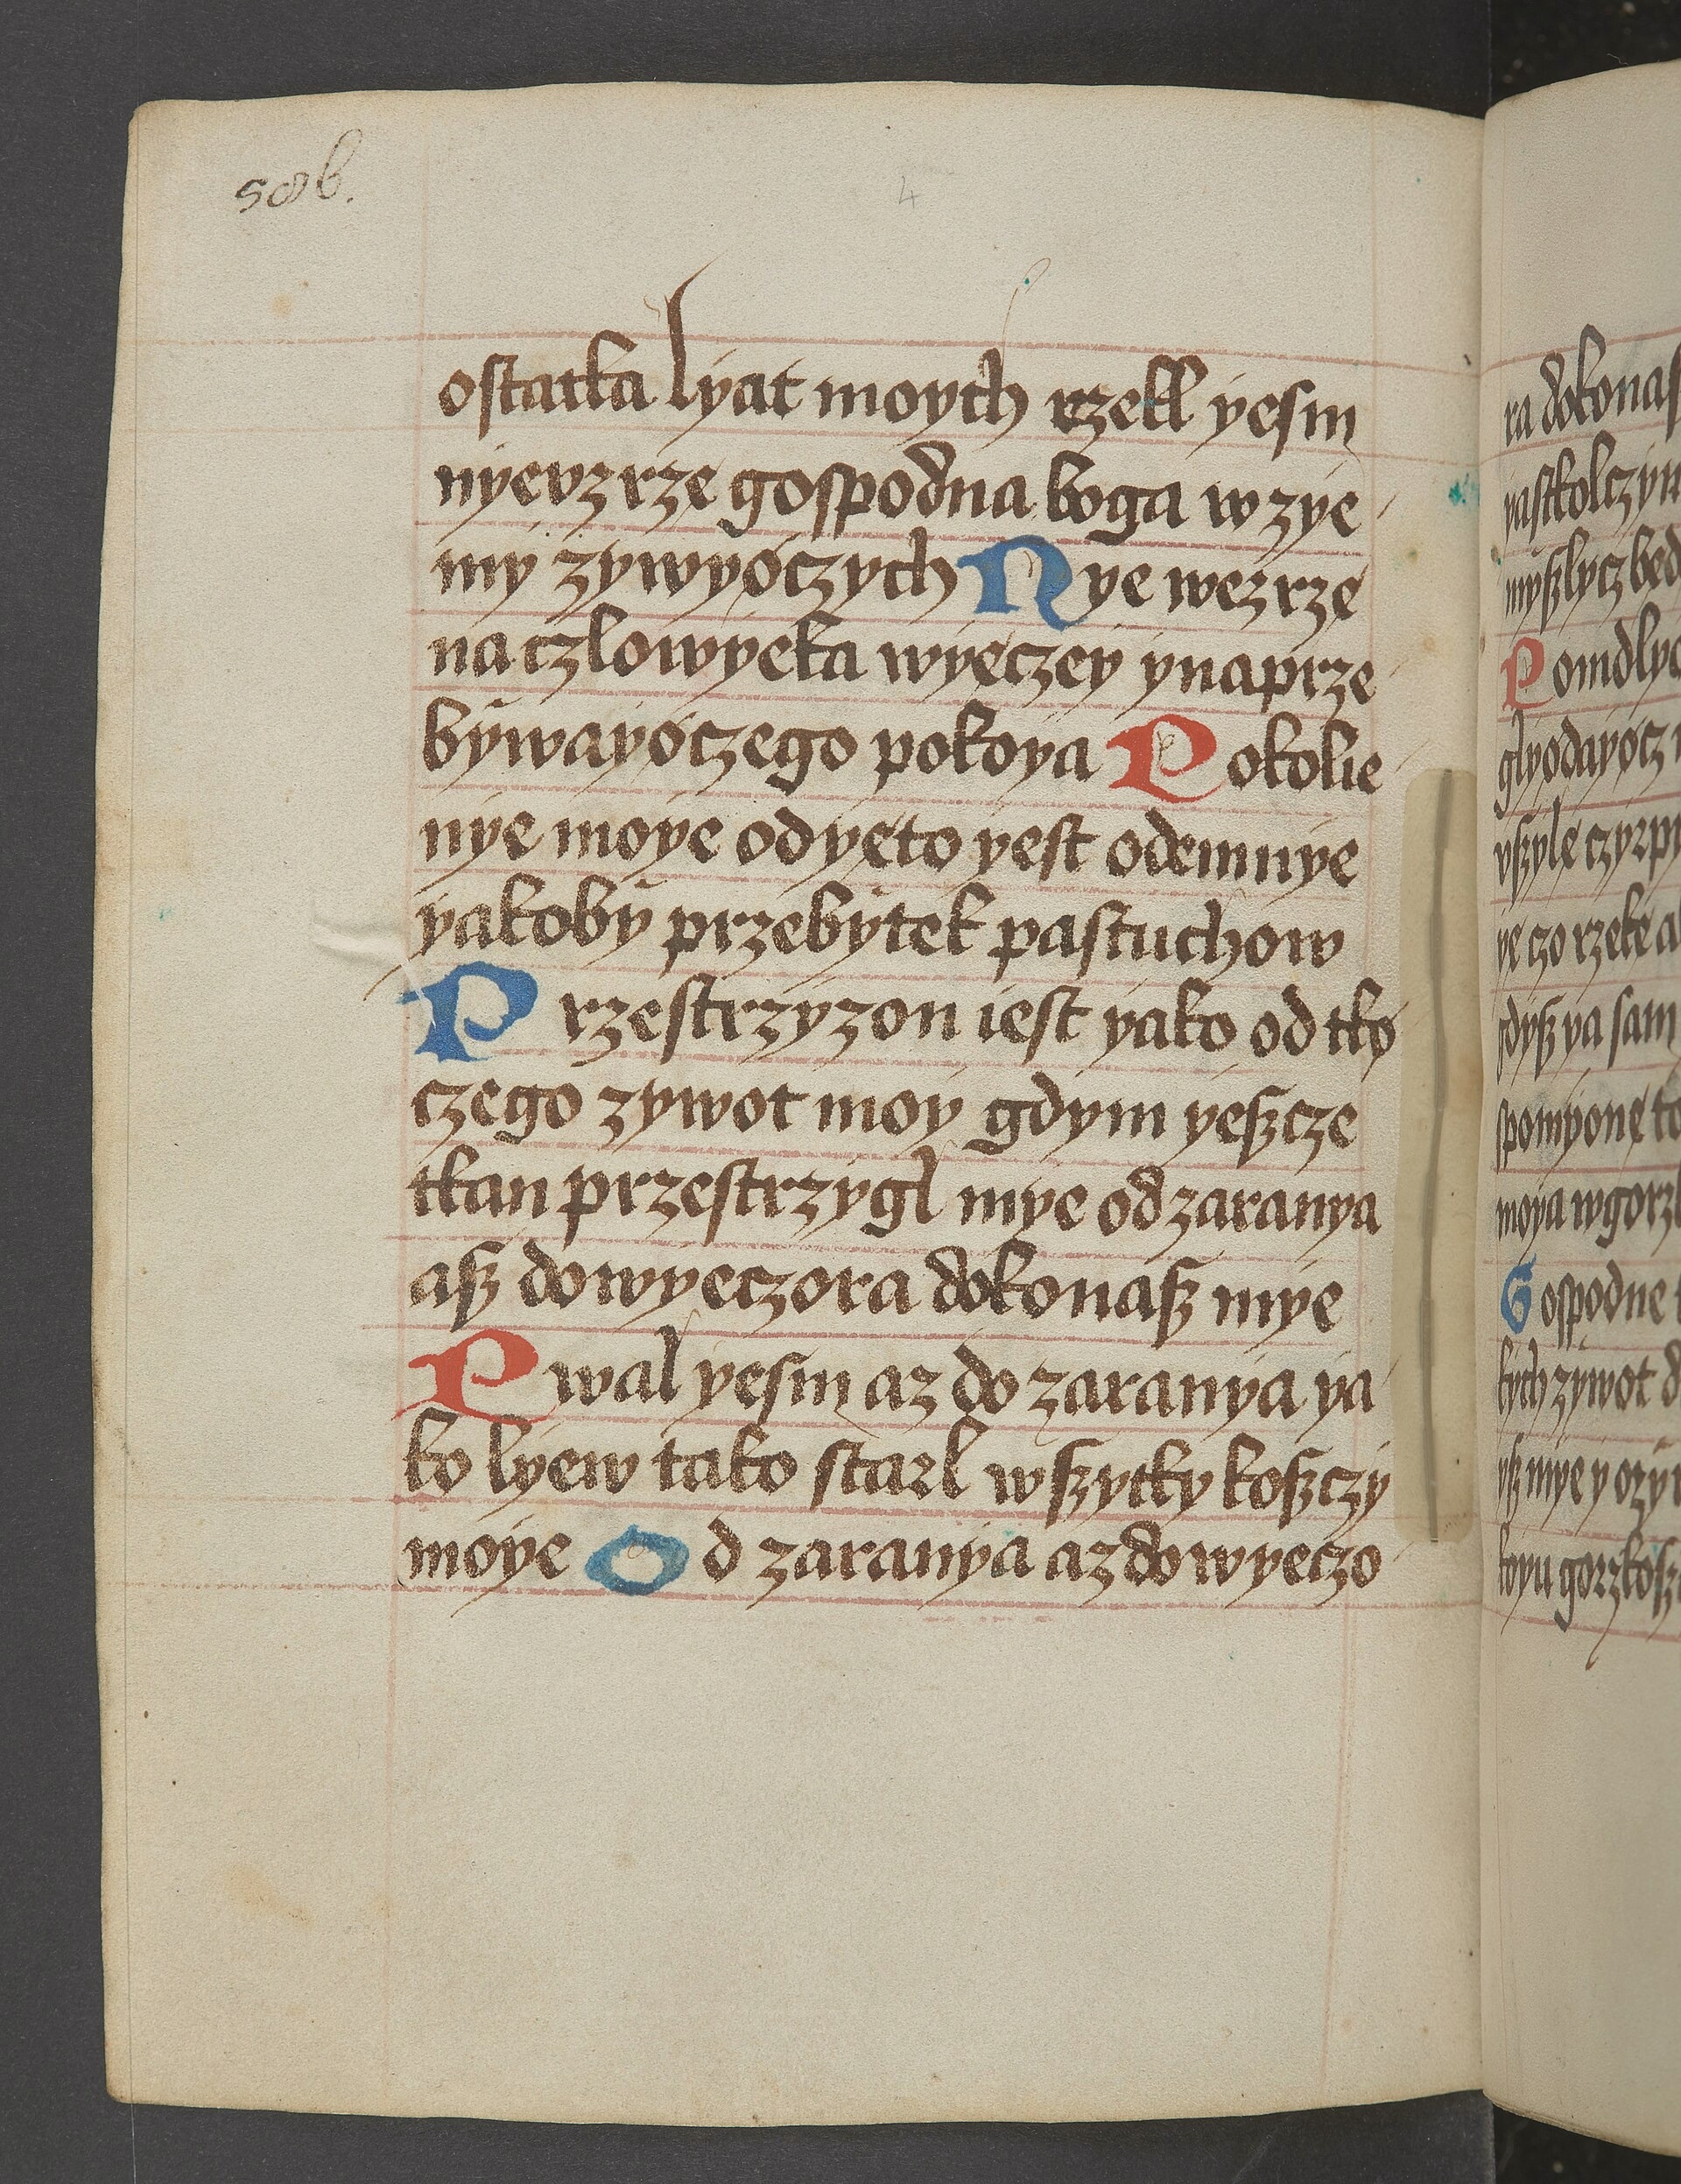 508b.
4
ostatka lyat moych rzekl yesm
nyevzrze gospodna boga w zye
mÿ zywyøczych Nye wezrze
na czlowyeka wyęczey ynaprze
bÿwayøczego pokoya Pokolie
nye moye odyęto yest odemnye
yakobÿ przebÿtek pastuchow
Przestrzyzon iest yako od tkø
czego zywot moy gdym yeszcze
tkan przestrzÿgl mye odzaranya
asz dowyeczora dokonasz mye
Pwal yesm az do zaranya ya
ko lyew tako starl wszytky koszczy
moÿe Od zaranya azdowyeczo
ra dokonas
yastkolczyn
myszlycz bed
Pomdlye
glyødayøcz
vszylę czyrpy
ye czo rzekę a
gdysz ya sam
spomyonę to
moya w gorzk
Gospodne
kych zywot d
ysz mye y ozy
koyu gorzkosz